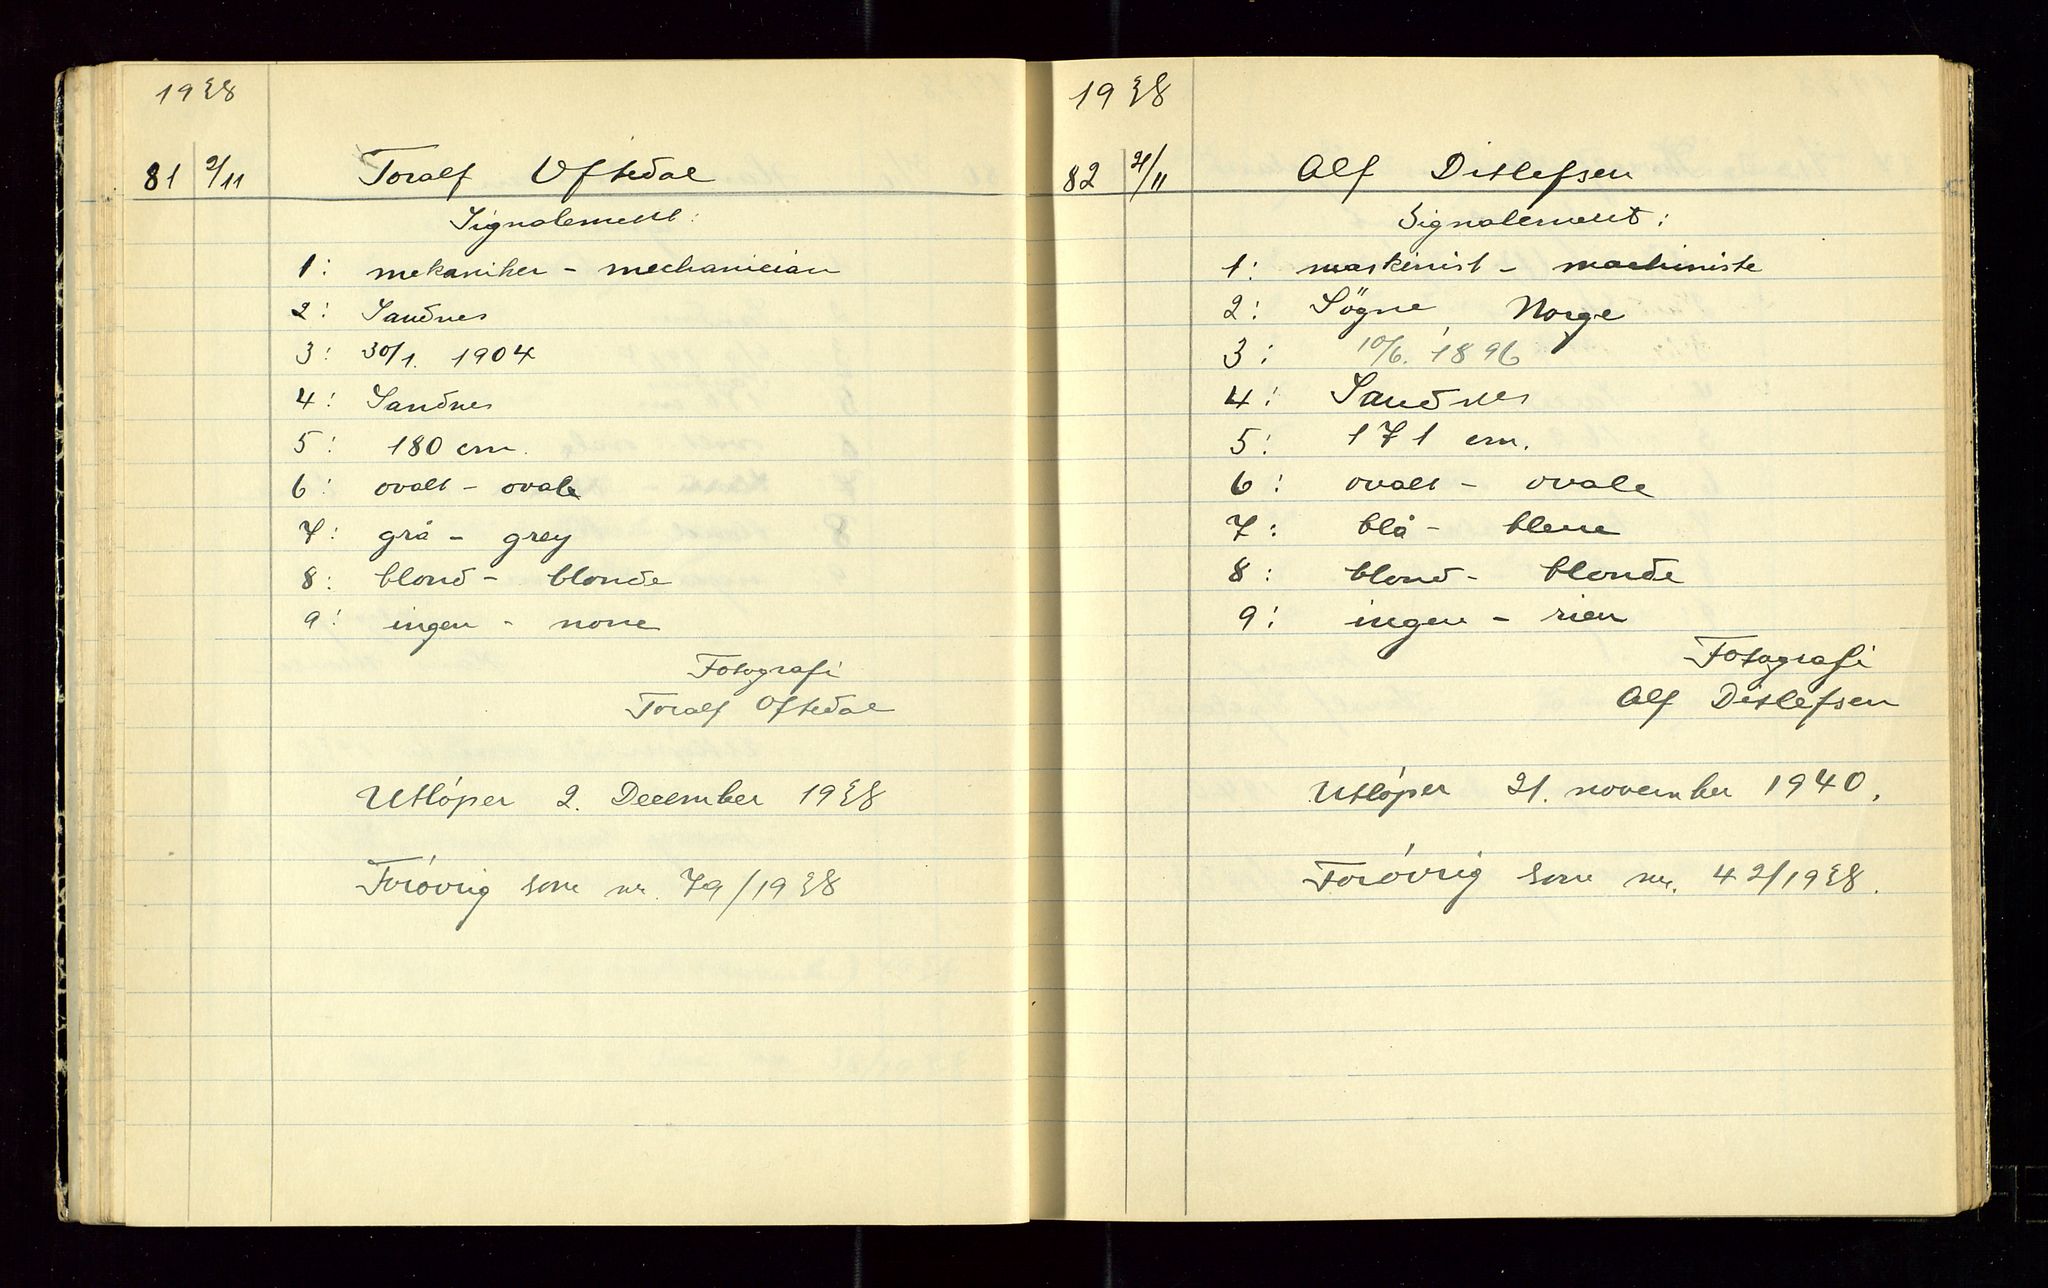 1938
81 2/11 Toralf Oftedal
Signalement:
1: mekaniker - mechanician
2: Sandnes
3: 30/1. 1904
4: Sandnes
5: 180 cm.
6: ovalt - ovale
7: grå - grey
8: blond - blonde
9: ingen - none
Fotografi
Toralf Oftedal
Utløper 2. December 1938
Forøvrig som nr. 79/1938
1938
82 21/11 Alf Ditlefsen
Signalement:
1: maskinist - machiniste
2: Søgne Norge
3: 10/6. 1896
4: Sandnes
5: 171 cm.
6: ovalt - ovale
7: blå - bleue
8: blond - blonde
9: ingen - rien
Fotografi
Alf Ditlefsen
Utløper 21. november 1940.
Forøvrig som nr. 42/1938.